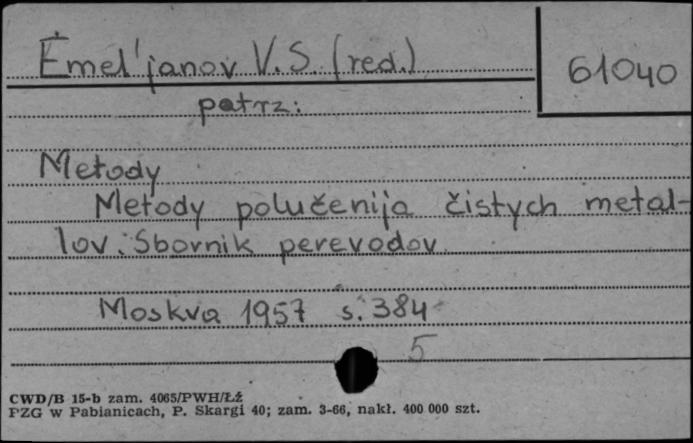 Ėmel'janov V.S. (red.)
61040
patrz:
Metody
Metody polučenija čistych metal-
lov. Sbornik perevodov
Moskva 1957 s. 384
5
CWD/B 15-b zam. 4065/PWH/Łź
PZG w Pabianicach, P. Skargi 40; zam. 3-66, nakł. 400 000 szt.